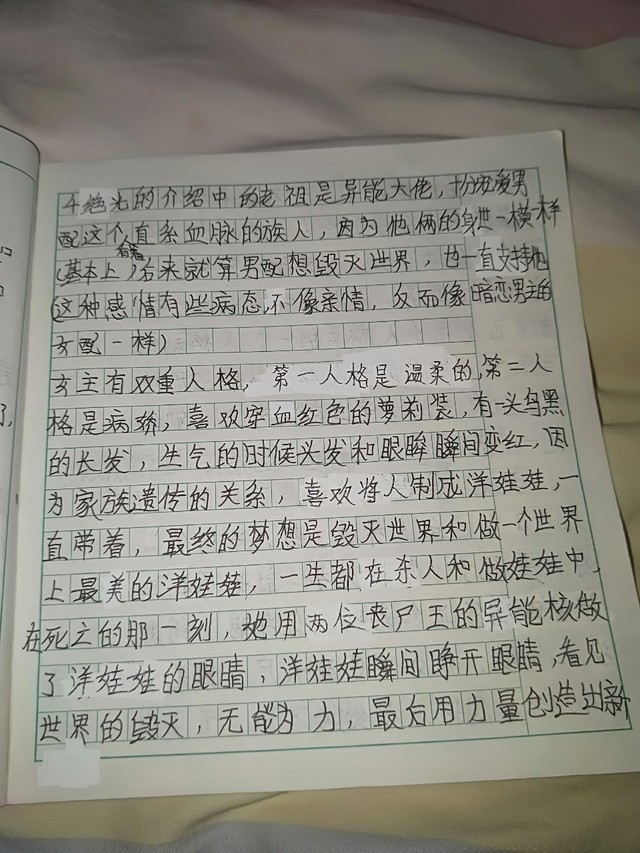 4绝光的介绍中的老祖是异能大佬,十分宠爱男
配这个直系血脉的族人,因为他俩的身世一模样
(基本上)看着后来就算男配想毁灭世界,也一直支持他
(这种感情有些病态,不像亲情,反而像暗恋男主的
女配一样)
女主有双重人格,第一人格是温柔的,第二人
格是病娇,喜欢穿血红色的萝莉装,有一头乌黑
的长发,生气的时候头发和眼眸瞬间变红,因
为家族遗传的关系,喜欢将人制成洋娃娃,一
直带着,最终的梦想是毁灭世界和做一个世界
上最美的洋娃娃,一生都在杀人和做娃娃中,
在死亡的那一刻,她用两位丧尸王的异能核做
了洋娃娃的眼睛,洋娃娃瞬间睁开眼睛,看见
世界的毁灭,无能为力,最后用力量创造出新